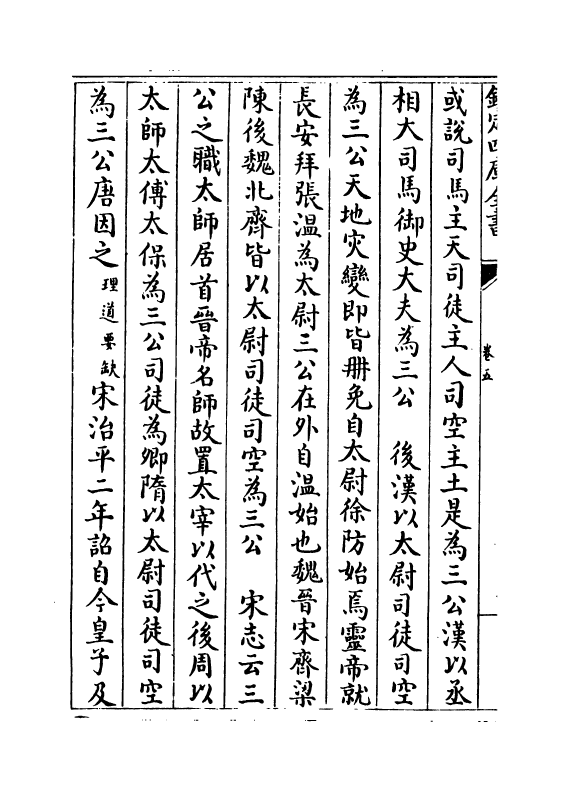 欽定四庫全書
卷五
或說司馬主天司徒主人司空主土是為三公漢以丞
相大司馬御史大夫為三公　後漢以太尉司徒司空
為三公天地灾變即皆冊免自太尉徐防始焉靈帝就
長安拜張溫為太尉三公在外自溫始也魏晉宋齊梁
陳後魏北齊皆以太尉司徒司空為三公　宋志云三
公之職太師居首晉帝名師故置太宰以代之後周以
太師太傅太保為三公司徒為卿隋以太尉司徒司空
為三公唐因之理道要缺宋治平二年詔自今皇子及